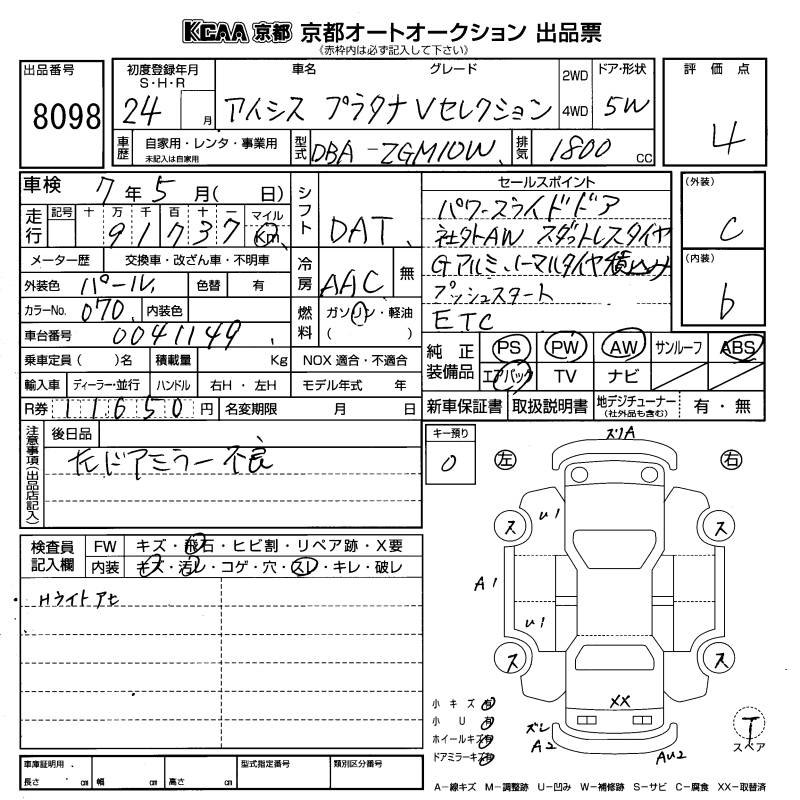 KCAA 京都 京都オートオークション 出品票
《赤枠内は必ず記入して下さい》
出品番号
8098
初度登録年月
S・H・R
24 月
車名 グレード
アイシス プラタナ Vセレクション
2WD
4WD
ドア・形状
5W
評価点
4
車歴
自家用・レンタ・事業用
未記入は自家用
型式
DBA-ZGM10W
排気
1800 CC
車検 7年5月( 日)
走行
記号 十 万 千 百 十 一 マイル
91737 Km
メーター歴 交換車・改ざん車・不明車
外装色 パール 色替 有
カラーNo. 070 内装色
車台番号 0041149
乗車定員( )名 積載量 Kg
輸入車 ディーラー・並行 ハンドル 右H・左H
R券 11650円 名変期限 月 日
シフト
DAT
冷房
AAC 無
燃料
ガソリン・軽油
( )
NOX 適合・不適合
モデル年式 年
セールスポイント
パワースライドドア
社外AW スタットレスタイヤ
Gアルミ、ノーマルタイヤ積込み
プッシュスタート
ETC
(外装)
C
(内装)
b
純正装備品
PS PW AW サンルーフ ABS
エアバック TV ナビ
新車保証書 取扱説明書 地デジチューナー (社外品も含む) 有・無
注意事項(出品店記入)
後日品
左ドアミラー不良
キー預り
0
検査員記入欄
FW キズ・飛石・ヒビ割・リペア跡・X要
内装 キズ・汚レ・コゲ・穴・スレ・キレ・破レ
・Hライトアセ
左 右
ズリA
ス ス
U1
A1
U1
ス ス
XX
ズレ
A2
AU2
小キズ 有
小U 有
ホイールキズ 有
ドアミラーキズ 有
T
スペア
車庫証明用
長さ cm 幅 cm 高さ cm
型式指定番号
類別区分番号
A―線キズ M―調整跡 U―凹み W―補修跡 S―サビ C―腐食 XX―取替済